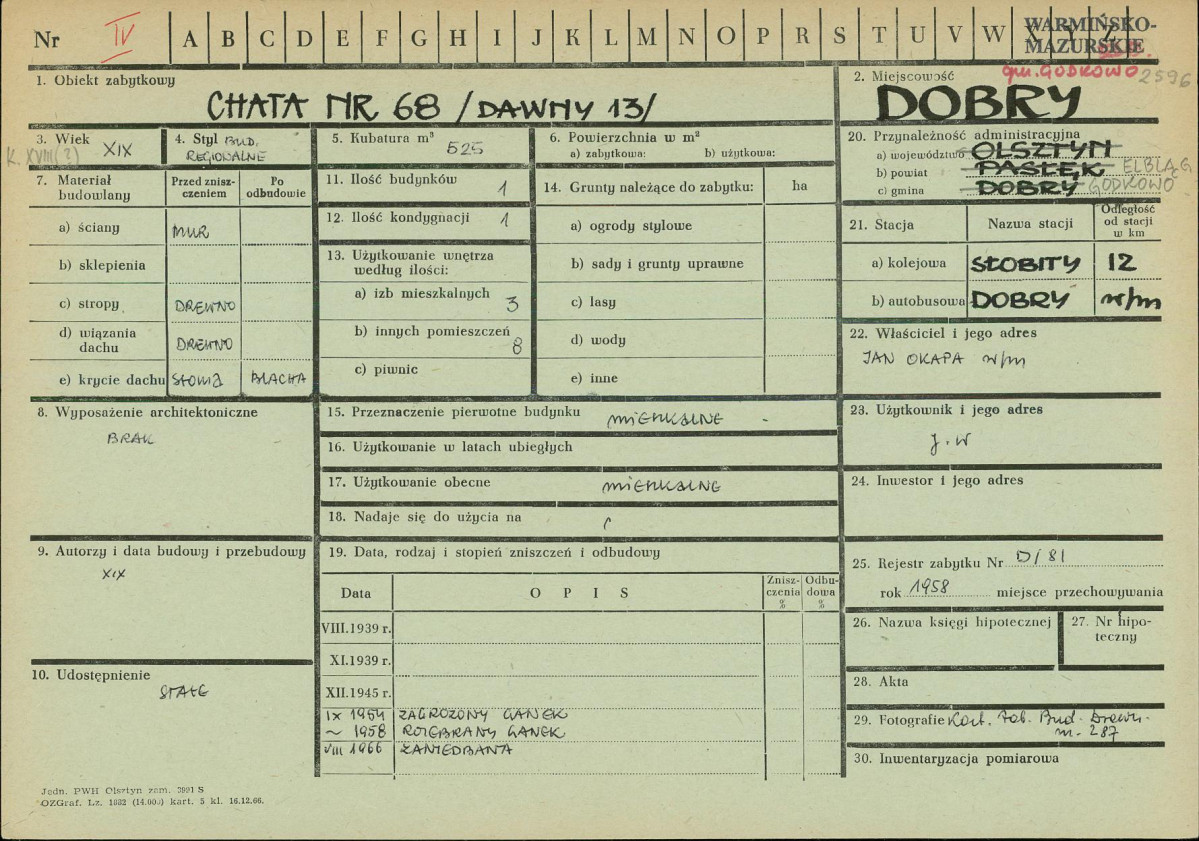 Nr IV A B C D E F G H I J K L M N O P R S T U V W X Y Z
WARMIŃSKO-
MAZURSKIE
gm. GODKOWO 2596
1. Obiekt zabytkowy
CHATA NR 68 /DAWNY 13/
2. Miejscowość
DOBRY
3. Wiek XIX
K. XVIII (?)
4. Styl BUD.
REGIONALNE
5. Kubatura m³ 525
6. Powierzchnia w m²
a) zabytkowa: b) użytkowa:
7. Materiał budowlany
Przed zniszczeniem
Po odbudowie
a) ściany MUR
b) sklepienia
c) stropy DREWNO
d) wiązania dachu DREWNO
e) krycie dachu SŁOMA BLACHA
11. Ilość budynków 1
12. Ilość kondygnacji 1
13. Użytkowanie wnętrza
według ilości:
a) izb mieszkalnych 3
b) innych pomieszczeń 8
c) piwnic
14. Grunty należące do zabytku: ha
a) ogrody stylowe
b) sady i grunty uprawne
c) lasy
d) wody
e) inne
20. Przynależność administracyjna
a) województwo OLSZTYN
b) powiat PASŁĘK ELBLĄG
c) gmina DOBRY GODKOWO
21. Stacja Nazwa stacji Odległość
od stacji
w km
a) kolejowa SŁOBITY 12
b) autobusowa DOBRY w/m
22. Właściciel i jego adres
JAN OKAPA w/m
8. Wyposażenie architektoniczne
BRAK
15. Przeznaczenie pierwotne budynku MIESZKALNE
16. Użytkowanie w latach ubiegłych
17. Użytkowanie obecne MIESZKALNE
18. Nadaje się do użycia na
23. Użytkownik i jego adres
j.w
24. Inwestor i jego adres
9. Autorzy i data budowy i przebudowy
XIX
10. Udostępnienie
STAŁE
19. Data, rodzaj i stopień zniszczeń i odbudowy
Data O P I S Zniszczenia % Odbudowa %
VIII.1939 r.
XI.1939 r.
XII.1945 r.
IX 1954 ZAGROŻONY GANEK
~ 1958 ROZEBRANY GANEK
VIII 1966 ZANIEDBANA
25. Rejestr zabytku Nr D/81
rok 1958 miejsce przechowywania
26. Nazwa księgi hipotecznej
27. Nr hipoteczny
28. Akta
29. Fotografie Kart. Zab. Bud. Drewn.
nr. 287
30. Inwentaryzacja pomiarowa
Jedn. PWH Olsztyn zam. 3991 S
OZGraf. Lz. 1832 (14.000) kart. 5 kl. 16.12.66.